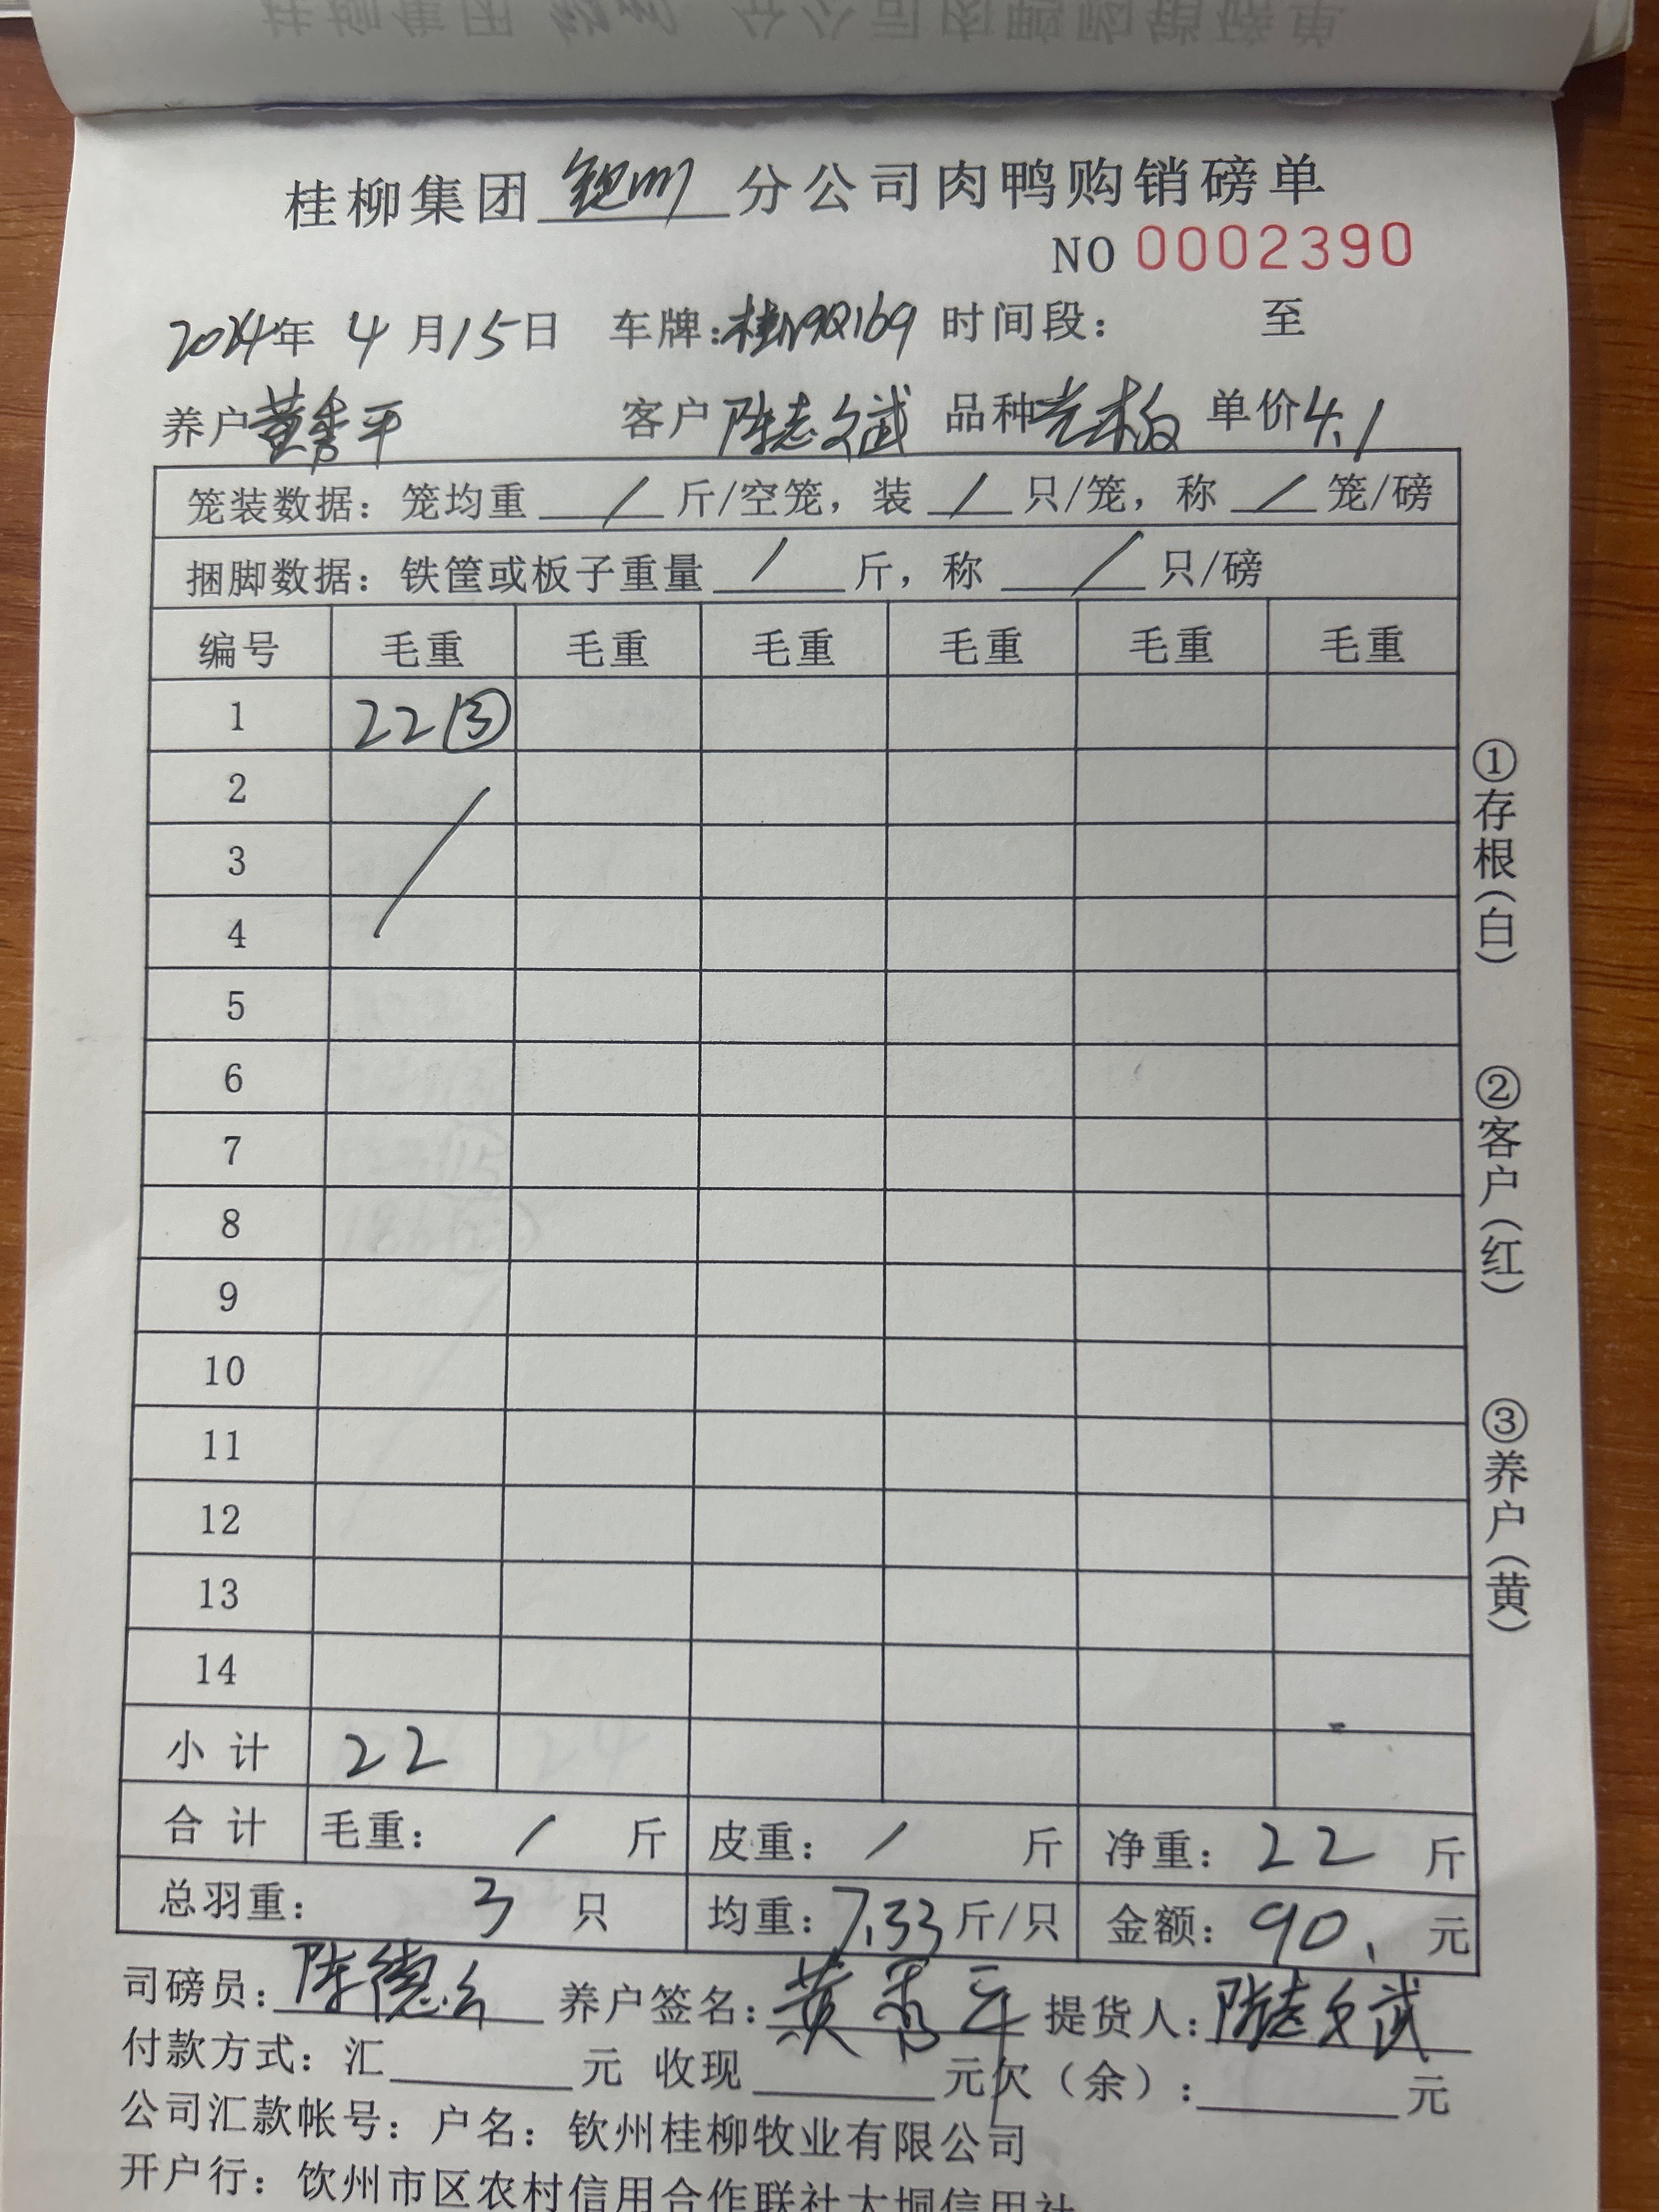 桂柳集团 钦州 分公司肉鸭购销磅单
NO 0002390
2024年 4月15日 车牌:桂N9Q169 时间段: 至
养户 黄秀平 客户 陈志斌 品种 单价4.1
笼装数据：笼均重 / 斤/空笼，装 / 只/笼，称 / 笼/磅
捆脚数据：铁筐或板子重量 / 斤，称 / 只/磅
编号 毛重 毛重 毛重 毛重 毛重 毛重
1 22③
2
3
4
5
6
7
8
9
10
11
12
13
14
小计 22
合计 毛重： / 斤 皮重： / 斤 净重：22 斤
总羽重： 3 只 均重：7.33斤/只 金额：90. 元
司磅员: 陈德 养户签名: 黄秀平 提货人: 陈志斌
付款方式：汇 元 收现 元欠（余）: 元
公司汇款帐号：户名：钦州桂柳牧业有限公司
开户行：钦州市区农村信用合作联社大垌信用社
①存根（白）
②客户（红）
③养户（黄）